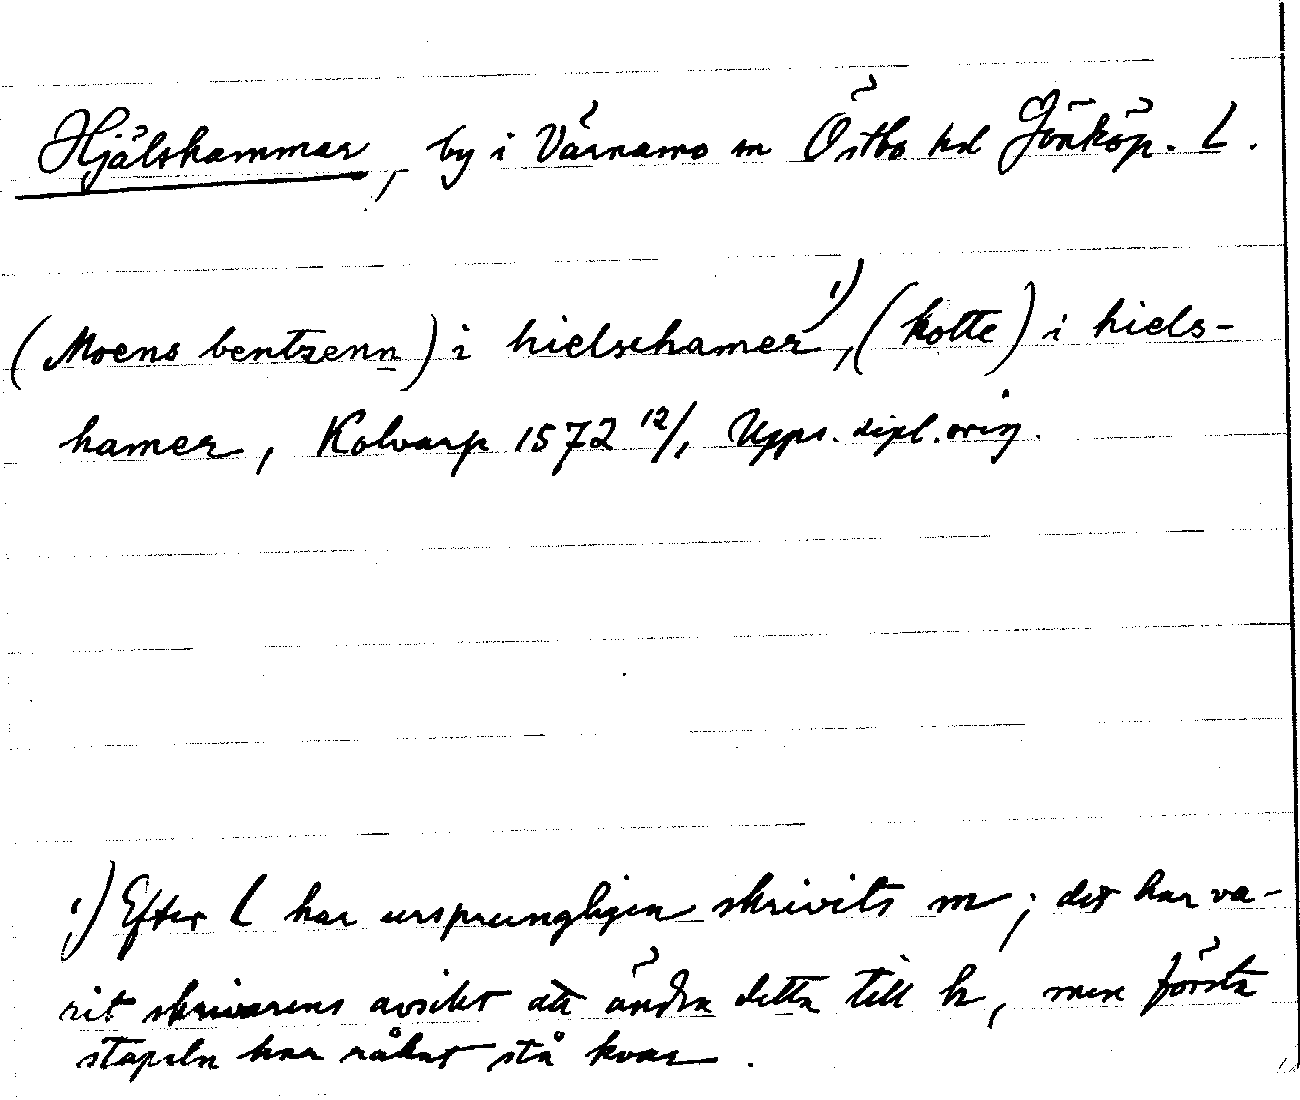 Hjälshammar, by i Värnamo sn Östbo hd Jönköp. L.
(Moens bentzenn) i hielschamer¹⁾, (kotte) i hiels-
hamer, Kolvarp 1572 12/1 Upps. dipl. orig.
¹⁾ Efter l har ursprungligen skrivits m; det har va-
rit skrivarens avsikt att ändra detta till h, men första
stapeln har råkat stå kvar.